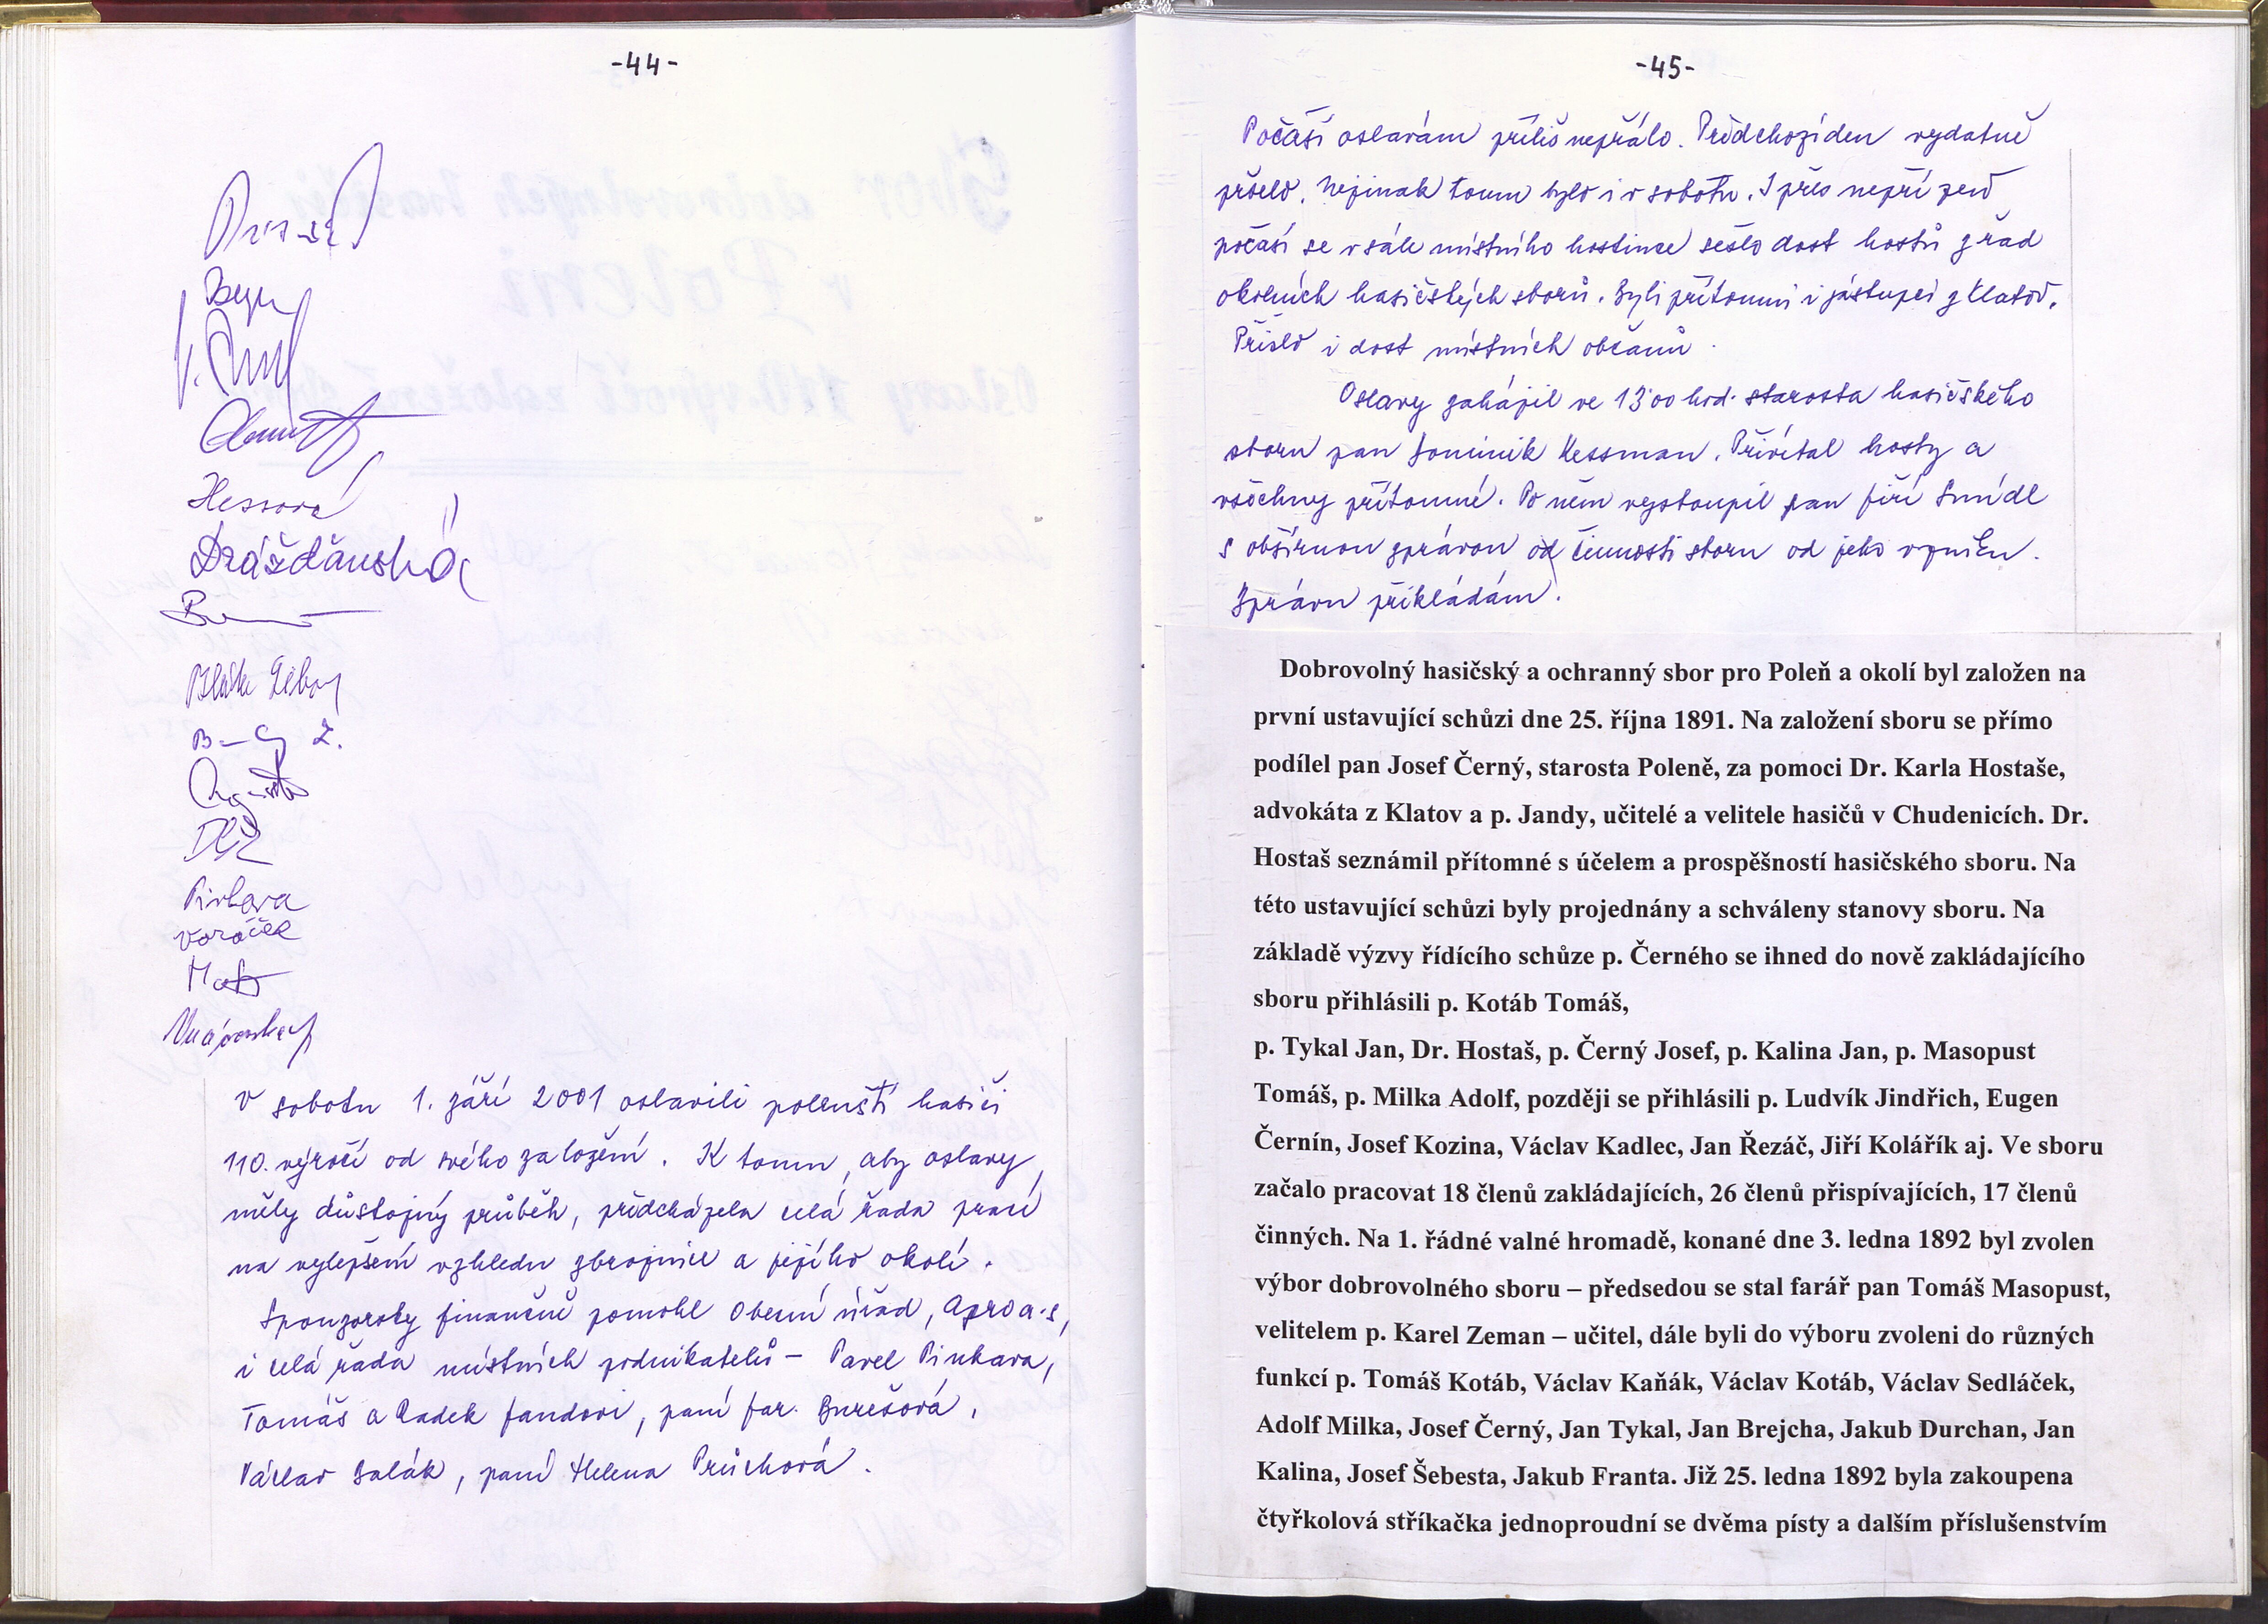 -44-
Hessová
Drážďanská
Pinkava
Voráček
V sobotu 1. září 2001 oslavili polenští hasiči
110. výročí od svého založení. K tomu, aby oslavy
měly důstojný průběh, předcházela celá řada prací
na vylepšení vzhledu zbrojnice a jejího okolí.
Sponzorsky finančně pomohl Obecní úřad, Agro a.s,
i celá řada místních podnikatelů - Pavel Pinkava,
Tomáš a Radek Jandovi, paní Jar. Burešová,
Václav Salák, paní Helena Průchová.
-45-
Počasí oslavám příliš nepřálo. Předchozí den vydatně
pršelo. Nejinak tomu bylo i v sobotu. I přes nepřízeň
počasí se v sále místního hostince sešlo dost hostů z řad
okolních hasičských sborů. Byli přítomni i zástupci z Klatov.
Přišlo i dost místních občanů.
Oslavy zahájil ve 13'00 hod. starosta hasičského
sboru pan Dominik Hessman. Přivítal hosty a
všechny přítomné. Po něm vystoupil pan Jiří Šmídl
s obšírnou zprávou od činnosti sboru od jeho vzniku.
Zprávu přikládám.
Dobrovolný hasičský a ochranný sbor pro Poleň a okolí byl založen na
první ustavující schůzi dne 25. října 1891. Na založení sboru se přímo
podílel pan Josef Černý, starosta Poleně, za pomoci Dr. Karla Hostaše,
advokáta z Klatov a p. Jandy, učitelé a velitele hasičů v Chudenicích. Dr.
Hostaš seznámil přítomné s účelem a prospěšností hasičského sboru. Na
této ustavující schůzi byly projednány a schváleny stanovy sboru. Na
základě výzvy řídícího schůze p. Černého se ihned do nově zakládajícího
sboru přihlásili p. Kotáb Tomáš,
p. Tykal Jan, Dr. Hostaš, p. Černý Josef, p. Kalina Jan, p. Masopust
Tomáš, p. Milka Adolf, později se přihlásili p. Ludvík Jindřich, Eugen
Černín, Josef Kozina, Václav Kadlec, Jan Řezáč, Jiří Kolářík aj. Ve sboru
začalo pracovat 18 členů zakládajících, 26 členů přispívajících, 17 členů
činných. Na 1. řádné valné hromadě, konané dne 3. ledna 1892 byl zvolen
výbor dobrovolného sboru – předsedou se stal farář pan Tomáš Masopust,
velitelem p. Karel Zeman – učitel, dále byli do výboru zvoleni do různých
funkcí p. Tomáš Kotáb, Václav Kaňák, Václav Kotáb, Václav Sedláček,
Adolf Milka, Josef Černý, Jan Tykal, Jan Brejcha, Jakub Durchan, Jan
Kalina, Josef Šebesta, Jakub Franta. Již 25. ledna 1892 byla zakoupena
čtyřkolová stříkačka jednoproudní se dvěma písty a dalším příslušenstvím